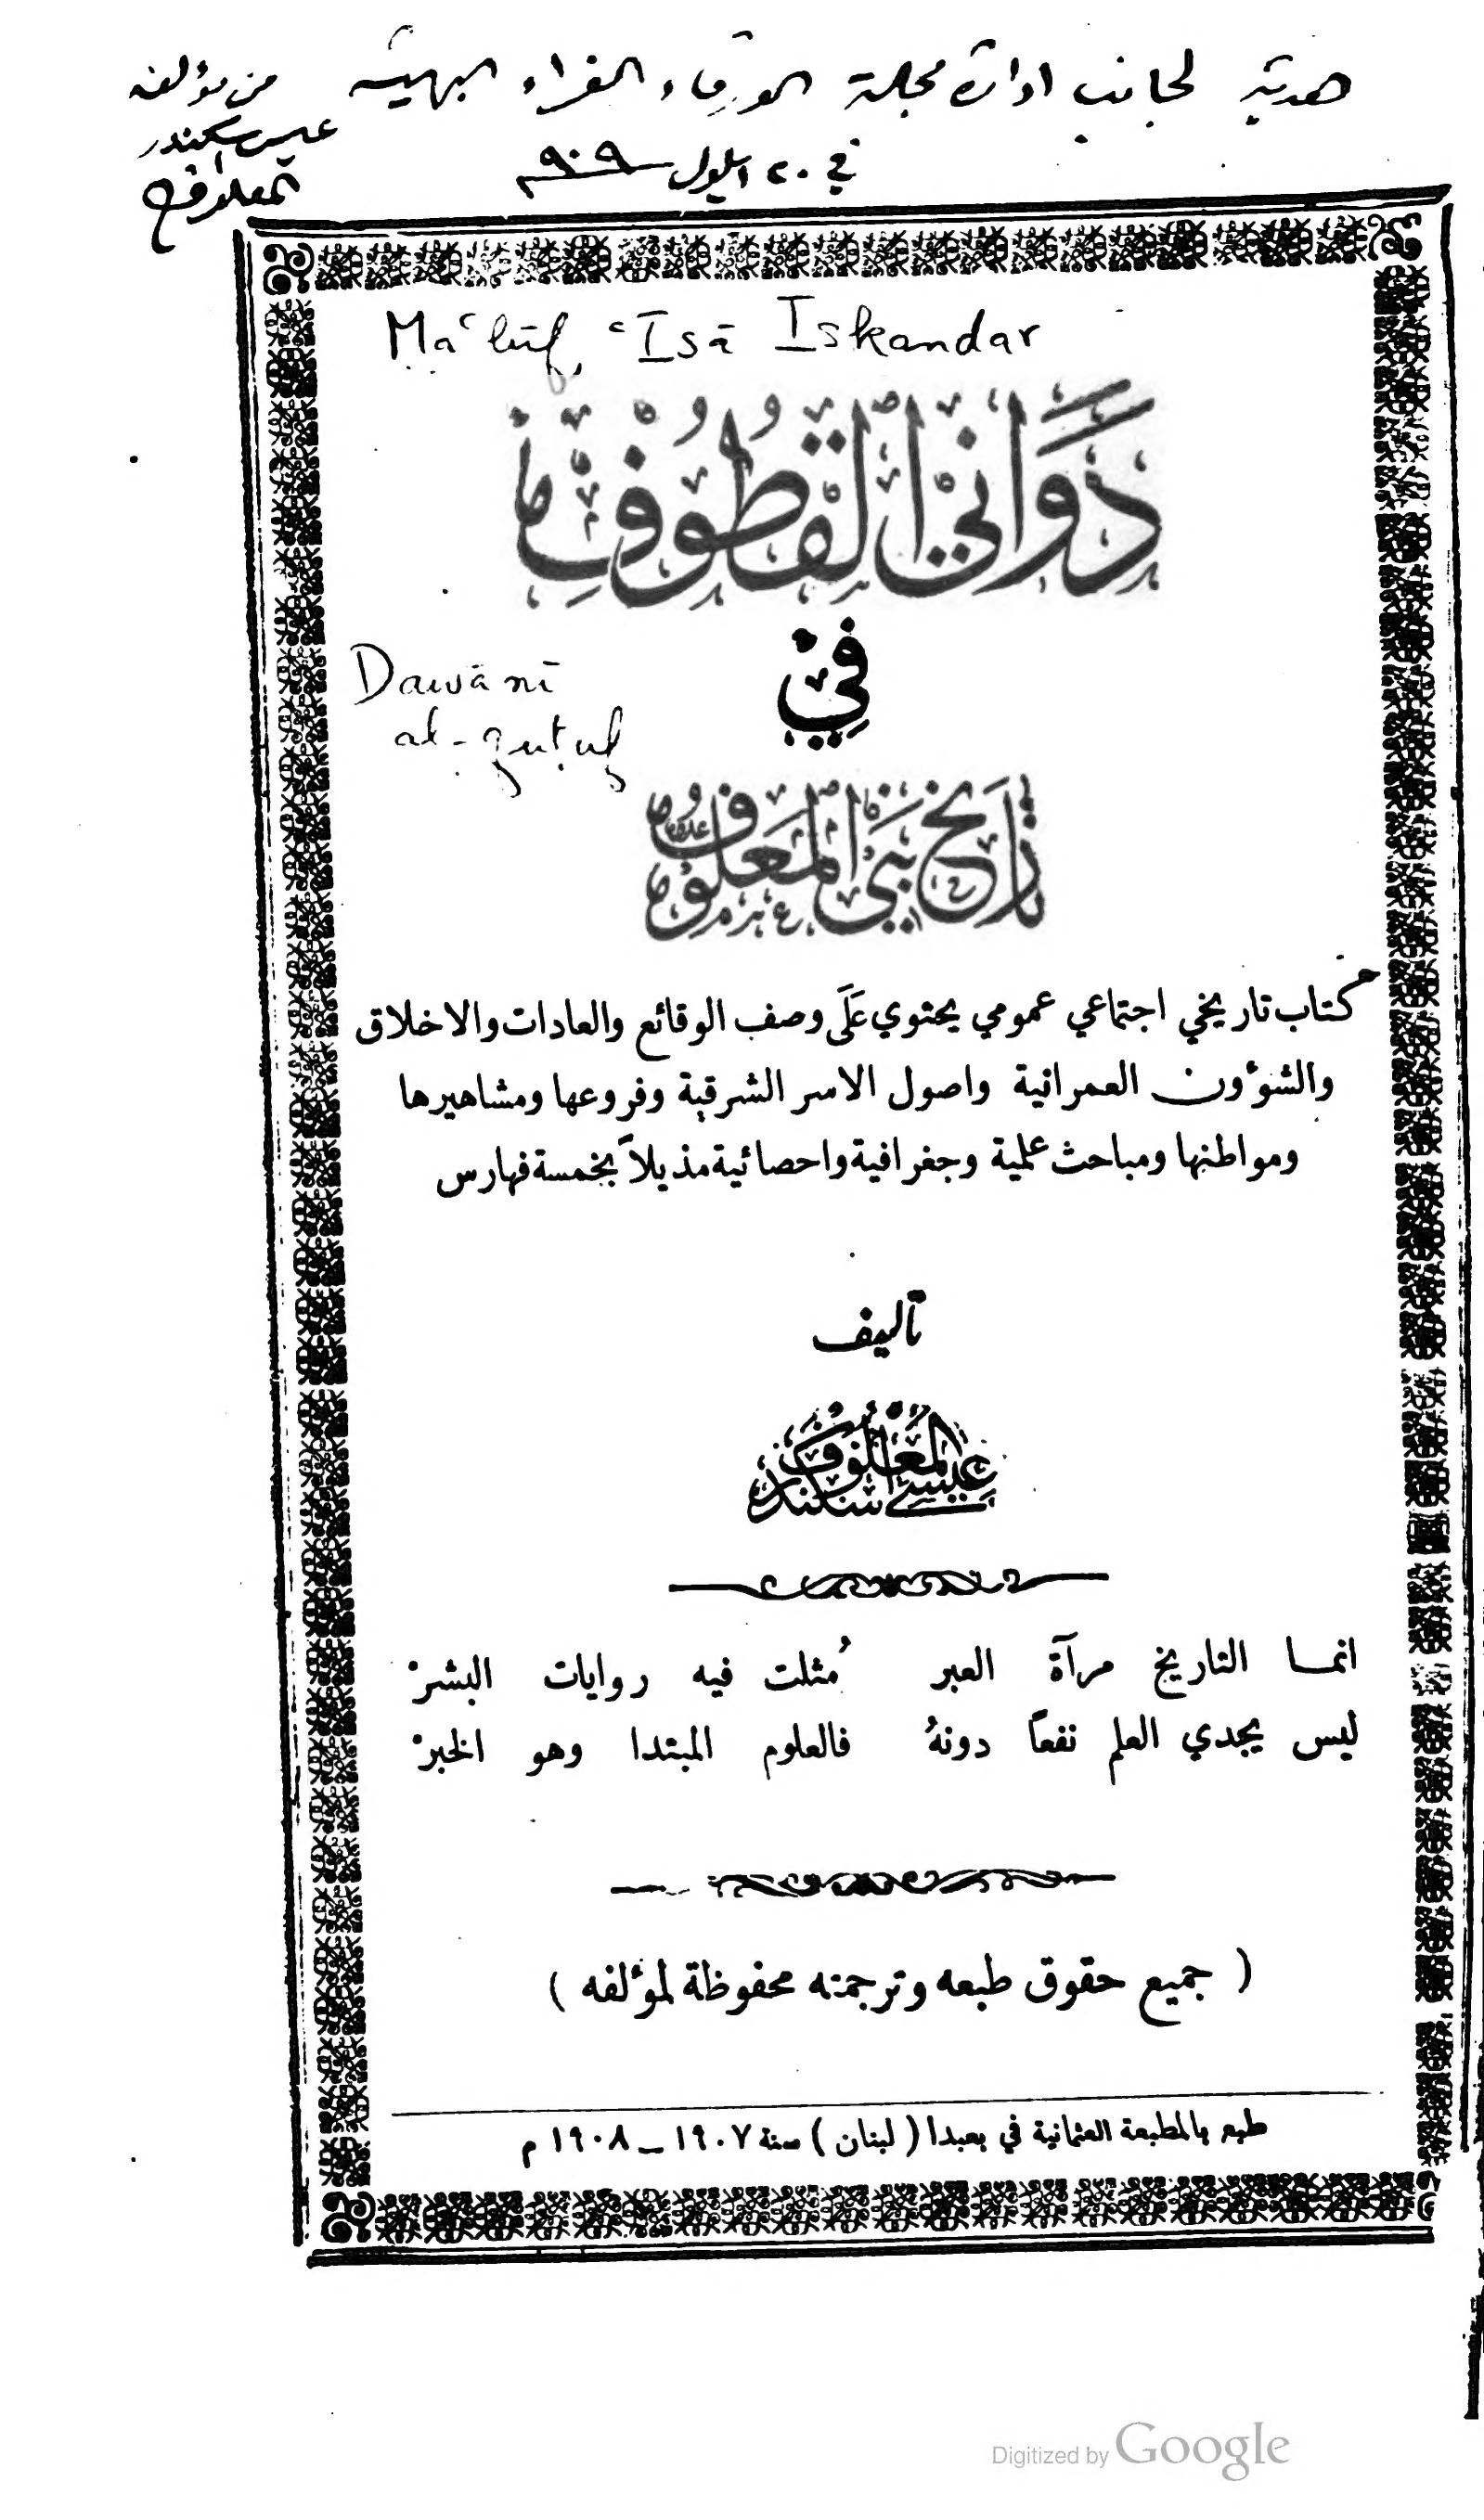 هدية لجانب ادارة مجلة الورقاء الغراء البهية من مؤلفه
عيسى اسكندر
المعلوف
في ٢٠ ايلول ٩٠٩
Ma‘lūf, ‘Īsā Iskandar
دَوَاني القُطُوفِ
فِي
Dawānī
al-quṭuf
تاريخ بني المعلوف
كتاب تاريخي اجتماعي عمومي يحتوي عَلَى وصف الوقائع والعادات والاخلاق
والشوءون العمرانية واصول الاسر الشرقية وفروعها ومشاهيرها
ومواطنها ومباحث علمية وجغرافية واحصائية مذيلاً بخمسة فهارس
تأليف
عيسى اسكندر المعلوف
انما التاريخ مرآة العبر مُثلت فيه روايات البشرْ
ليس يجدي العلم نفعاً دونهُ فالعلوم المبتدا وهو الخبرْ
( جميع حقوق طبعه وترجمته محفوظة لمؤلفه )
طبع بالمطبعة العثمانية في بعبدا ( لبنان ) سنة ١٩٠٧ – ١٩٠٨ م
Digitized by Google